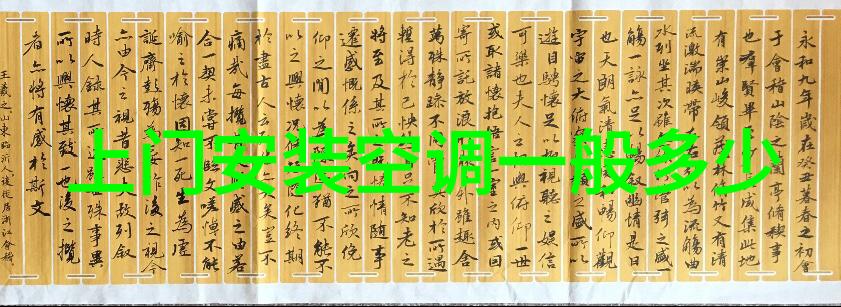 上门安装空调一般多少
永和九年歲在癸丑暮春之初會
于會稽山陰之蘭亭脩稧事
也群賢畢至少長咸集此地
有崇山峻領茂林脩竹又有清
流激湍暎帶左右以為流觴曲
水列坐其次雖無管弦之盛一
觴一詠亦足以暢敘幽情是日
也天朗氣清暢仰觀
宇宙之大俯察之盛所以
遊目騁懷足以極視聽之娛信
可樂也夫人之相與俯仰一世
或取諸懷抱悟言一室之內或因
寄所託放浪之外雖趣舍
萬殊靜躁不同欣於所遇
暫得於己快足不知老之
將至及其所之情隨事
遷感慨係之矣向之所欣俛
仰之間以為猶不能不
以之興懷況化終期
於盡古人云矣豈不
痛哉每攬感之由若
合一契未嘗不臨文嗟悼不能
喻之於懷固知一死生為虛
誕齊彭殤為妄作後之視今
亦由今之視昔悲夫故列敘
時人錄其所雖世殊事異
所以興懷其致一也後之攬
者亦將有感於斯文
王羲之山東臨沂人後徙居浙江會稽